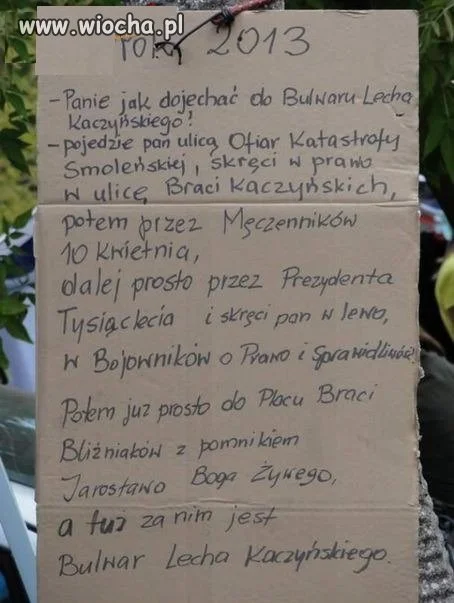 www.wiocha.pl
rok 2013
- Panie jak dojechać do Bulwaru Lecha
Kaczyńskiego!
- pojedzie pan ulicą Ofiar Katastrofy
Smoleńskiej, skręci w prawo
w ulicę Braci Kaczyńskich,
potem przez Męczenników
10 kwietnia,
dalej prosto przez Prezydenta
Tysiąclecia i skręci pan w lewo,
w Bojowników o Prawo i Sprawiedliwość
Potem już prosto do Placu Braci
Bliźniaków z pomnikiem
Jarosława Boga Żywego,
a tuż za nim jest
Bulwar Lecha Kaczyńskiego.